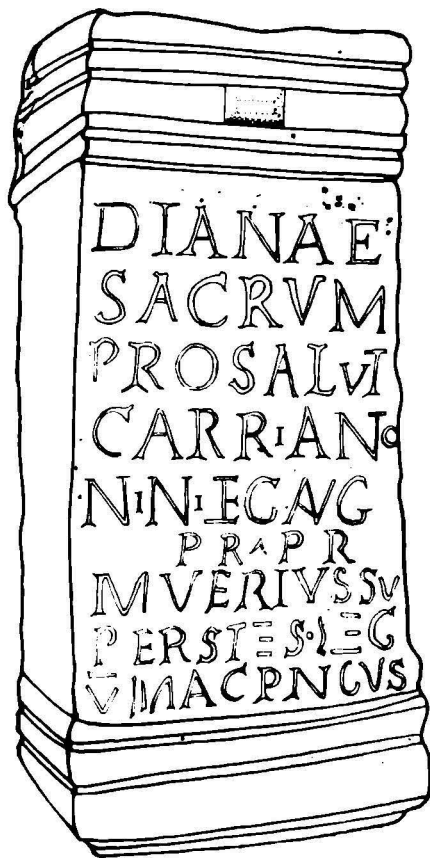 DIANAE
SACRVM
PROSALVT
CARRIANO
NINIEGAVG
PR PR
MVERIVSSV
PERSTES·LEG
V̅ MACPNCVS